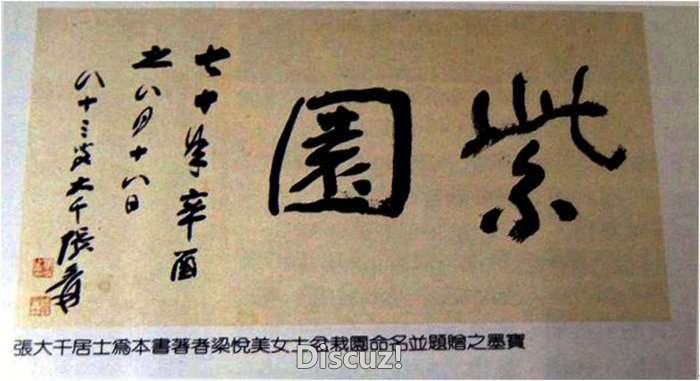 紫園
七十年辛酉
之八月十八日
八十三叟大千張爰
張大千居士為本書著者梁悅美女士盆栽園命名並題贈之墨寶
Discuz!